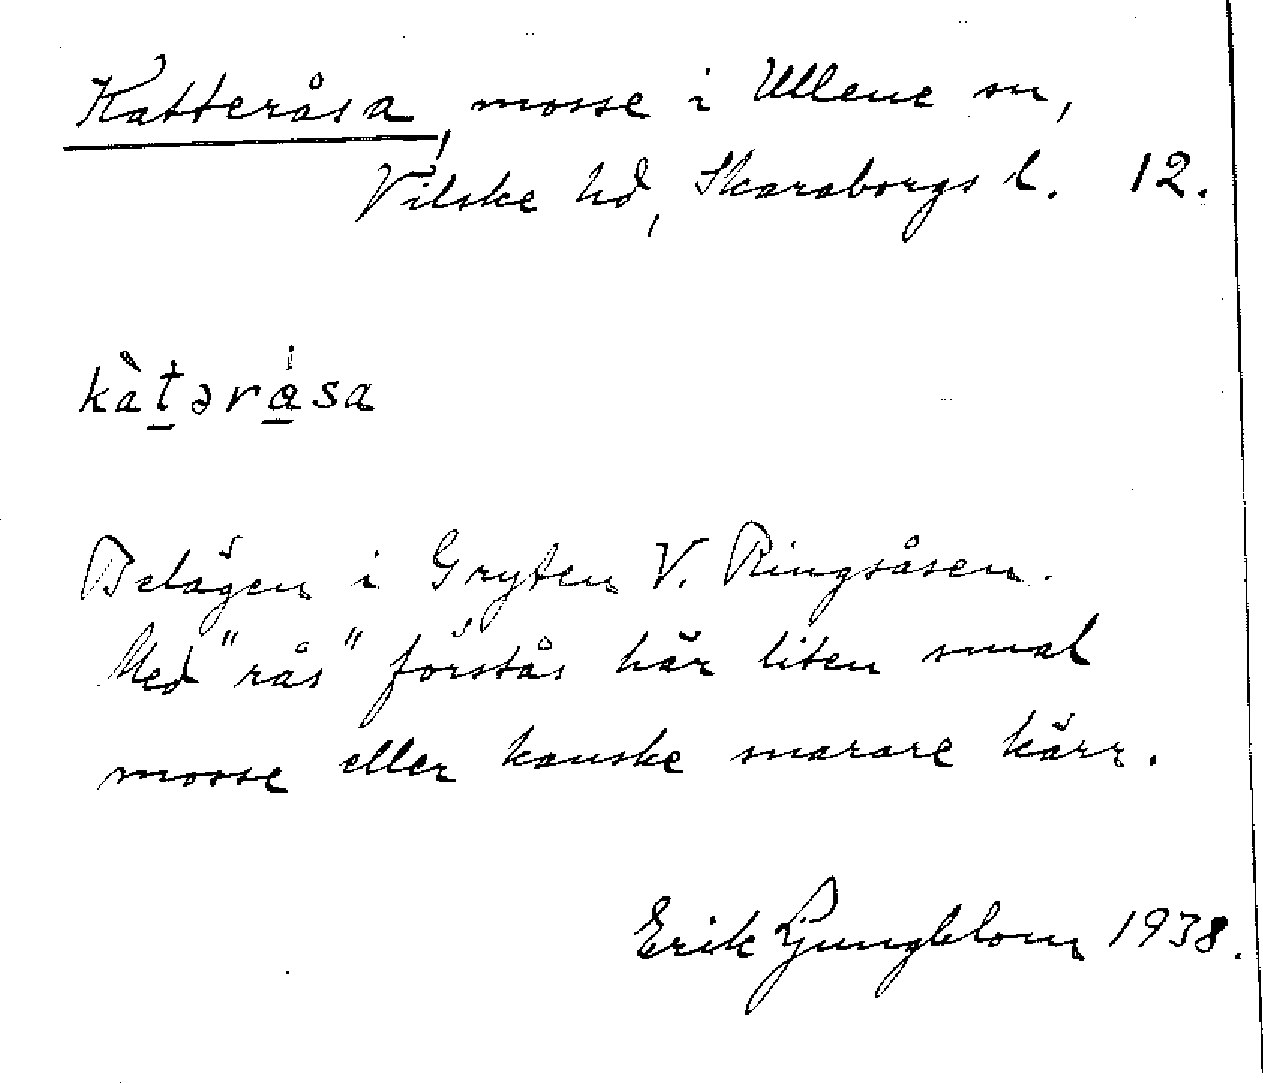 Katteråsa, mosse i Ullene sn,
Vilske hd, Skaraborgs l. 12.
kàtəråsa
Belägen i Gryten V. Ringsåsen.
Med "rås" förstås här liten smal
mosse eller kanske snarare kärr.
Erik Ljungblom 1938.